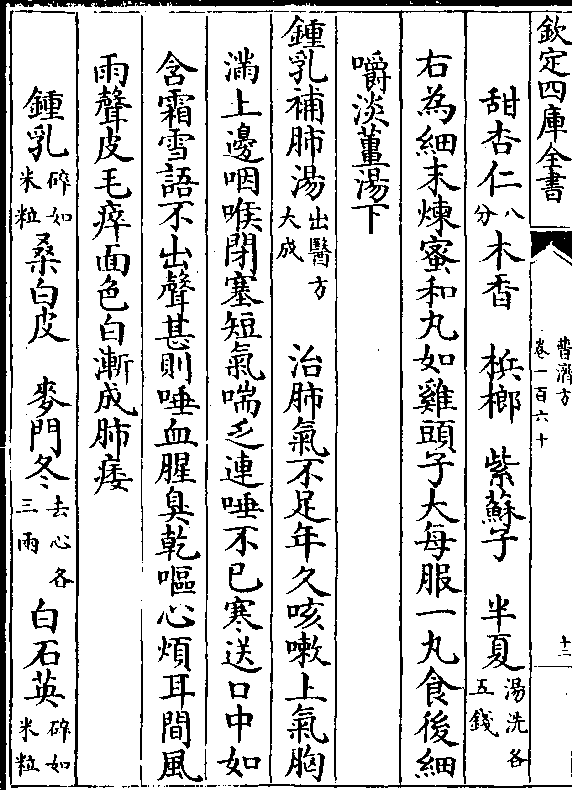 欽定四庫全書
普濟方
卷一百六十
十三
甜杏仁八分木香 梹榔 紫蘇子 半夏湯洗各五錢
右為細末煉蜜和丸如雞頭子大每服一丸食後細
嚼淡薑湯下
鍾乳補肺湯出醫方大成 治肺氣不足年久咳嗽上氣胸
滿上邊咽喉閉塞短氣喘乏連唾不已寒送口中如
含霜雪語不出聲甚則唾血腥臭乾嘔心煩耳間風
雨聲皮毛瘁面色白漸成肺痿
鍾乳碎如米粒桑白皮 麥門冬去心各三兩 白石英碎如米粒